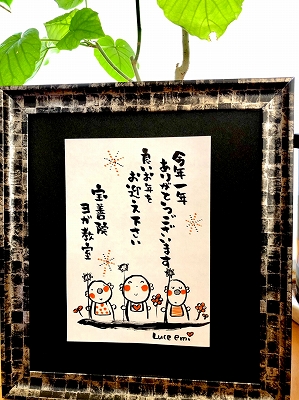 今年一年
ありがとうございます
良いお年を
お迎え下さい
宝善院
ヨガ教室
Luce emi